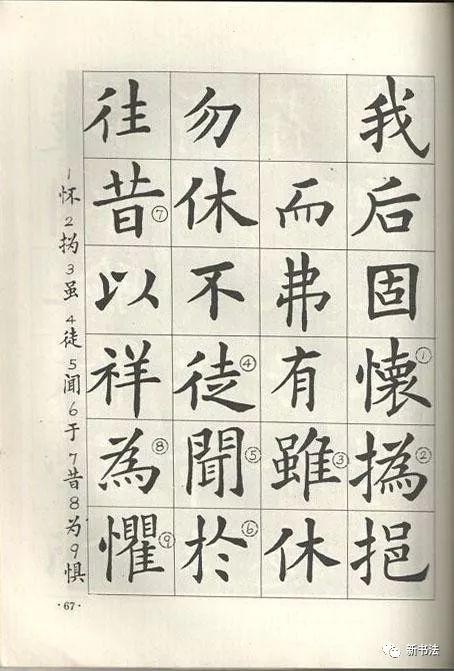 我后固懷①撝②挹
而弗有雖③休
勿休不徒④聞⑤於⑥
往昔⑦以祥為⑧懼⑨
1怀2㧑3虽4徒5闻6于7昔8为9惧
·67·
新书法